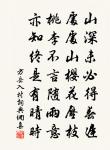 山深未必得春遲
處處山櫻花壓枝
桃李不言隨雨意
亦知終是有晴時
方岳入村